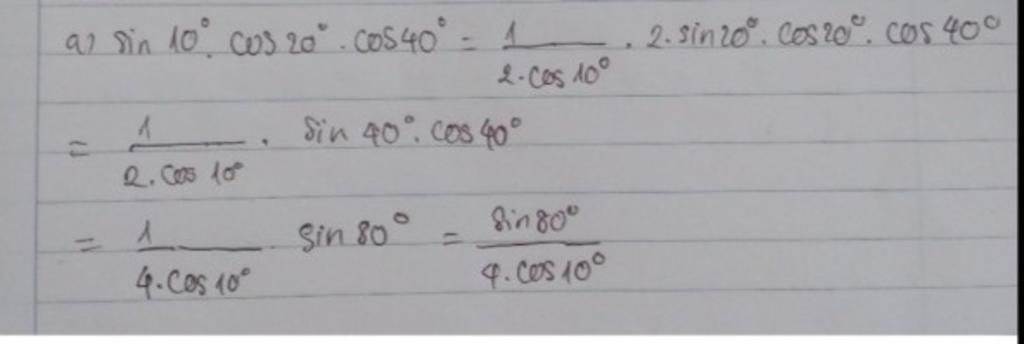 a) sin 10°. cos 20°. cos 40° = 1/(2.cos 10°) . 2.sin 20°. cos 20°. cos 40°
= 1/(2.cos 10°) . sin 40°. cos 40°
= 1/(4.cos 10°) sin 80° = sin 80°/(4.cos 10°)